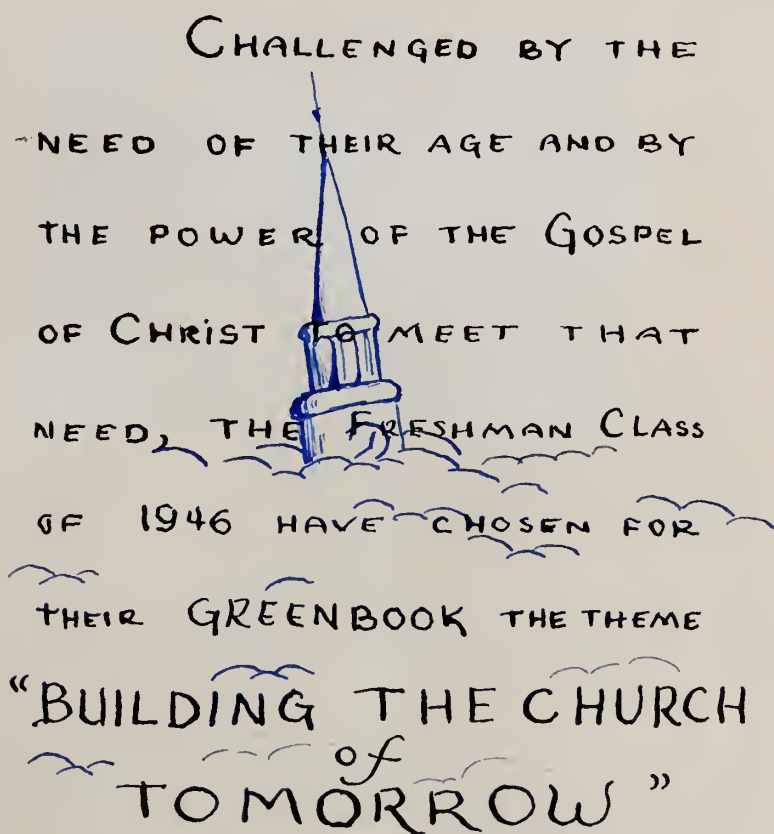 CHALLENGED BY THE
NEED OF THEIR AGE AND BY
THE POWER OF THE GOSPEL
OF CHRIST TO MEET THAT
NEED, THE FRESHMAN CLASS
OF 1946 HAVE CHOSEN FOR
THEIR GREENBOOK THE THEME
“BUILDING THE CHURCH
of
TOMORROW”